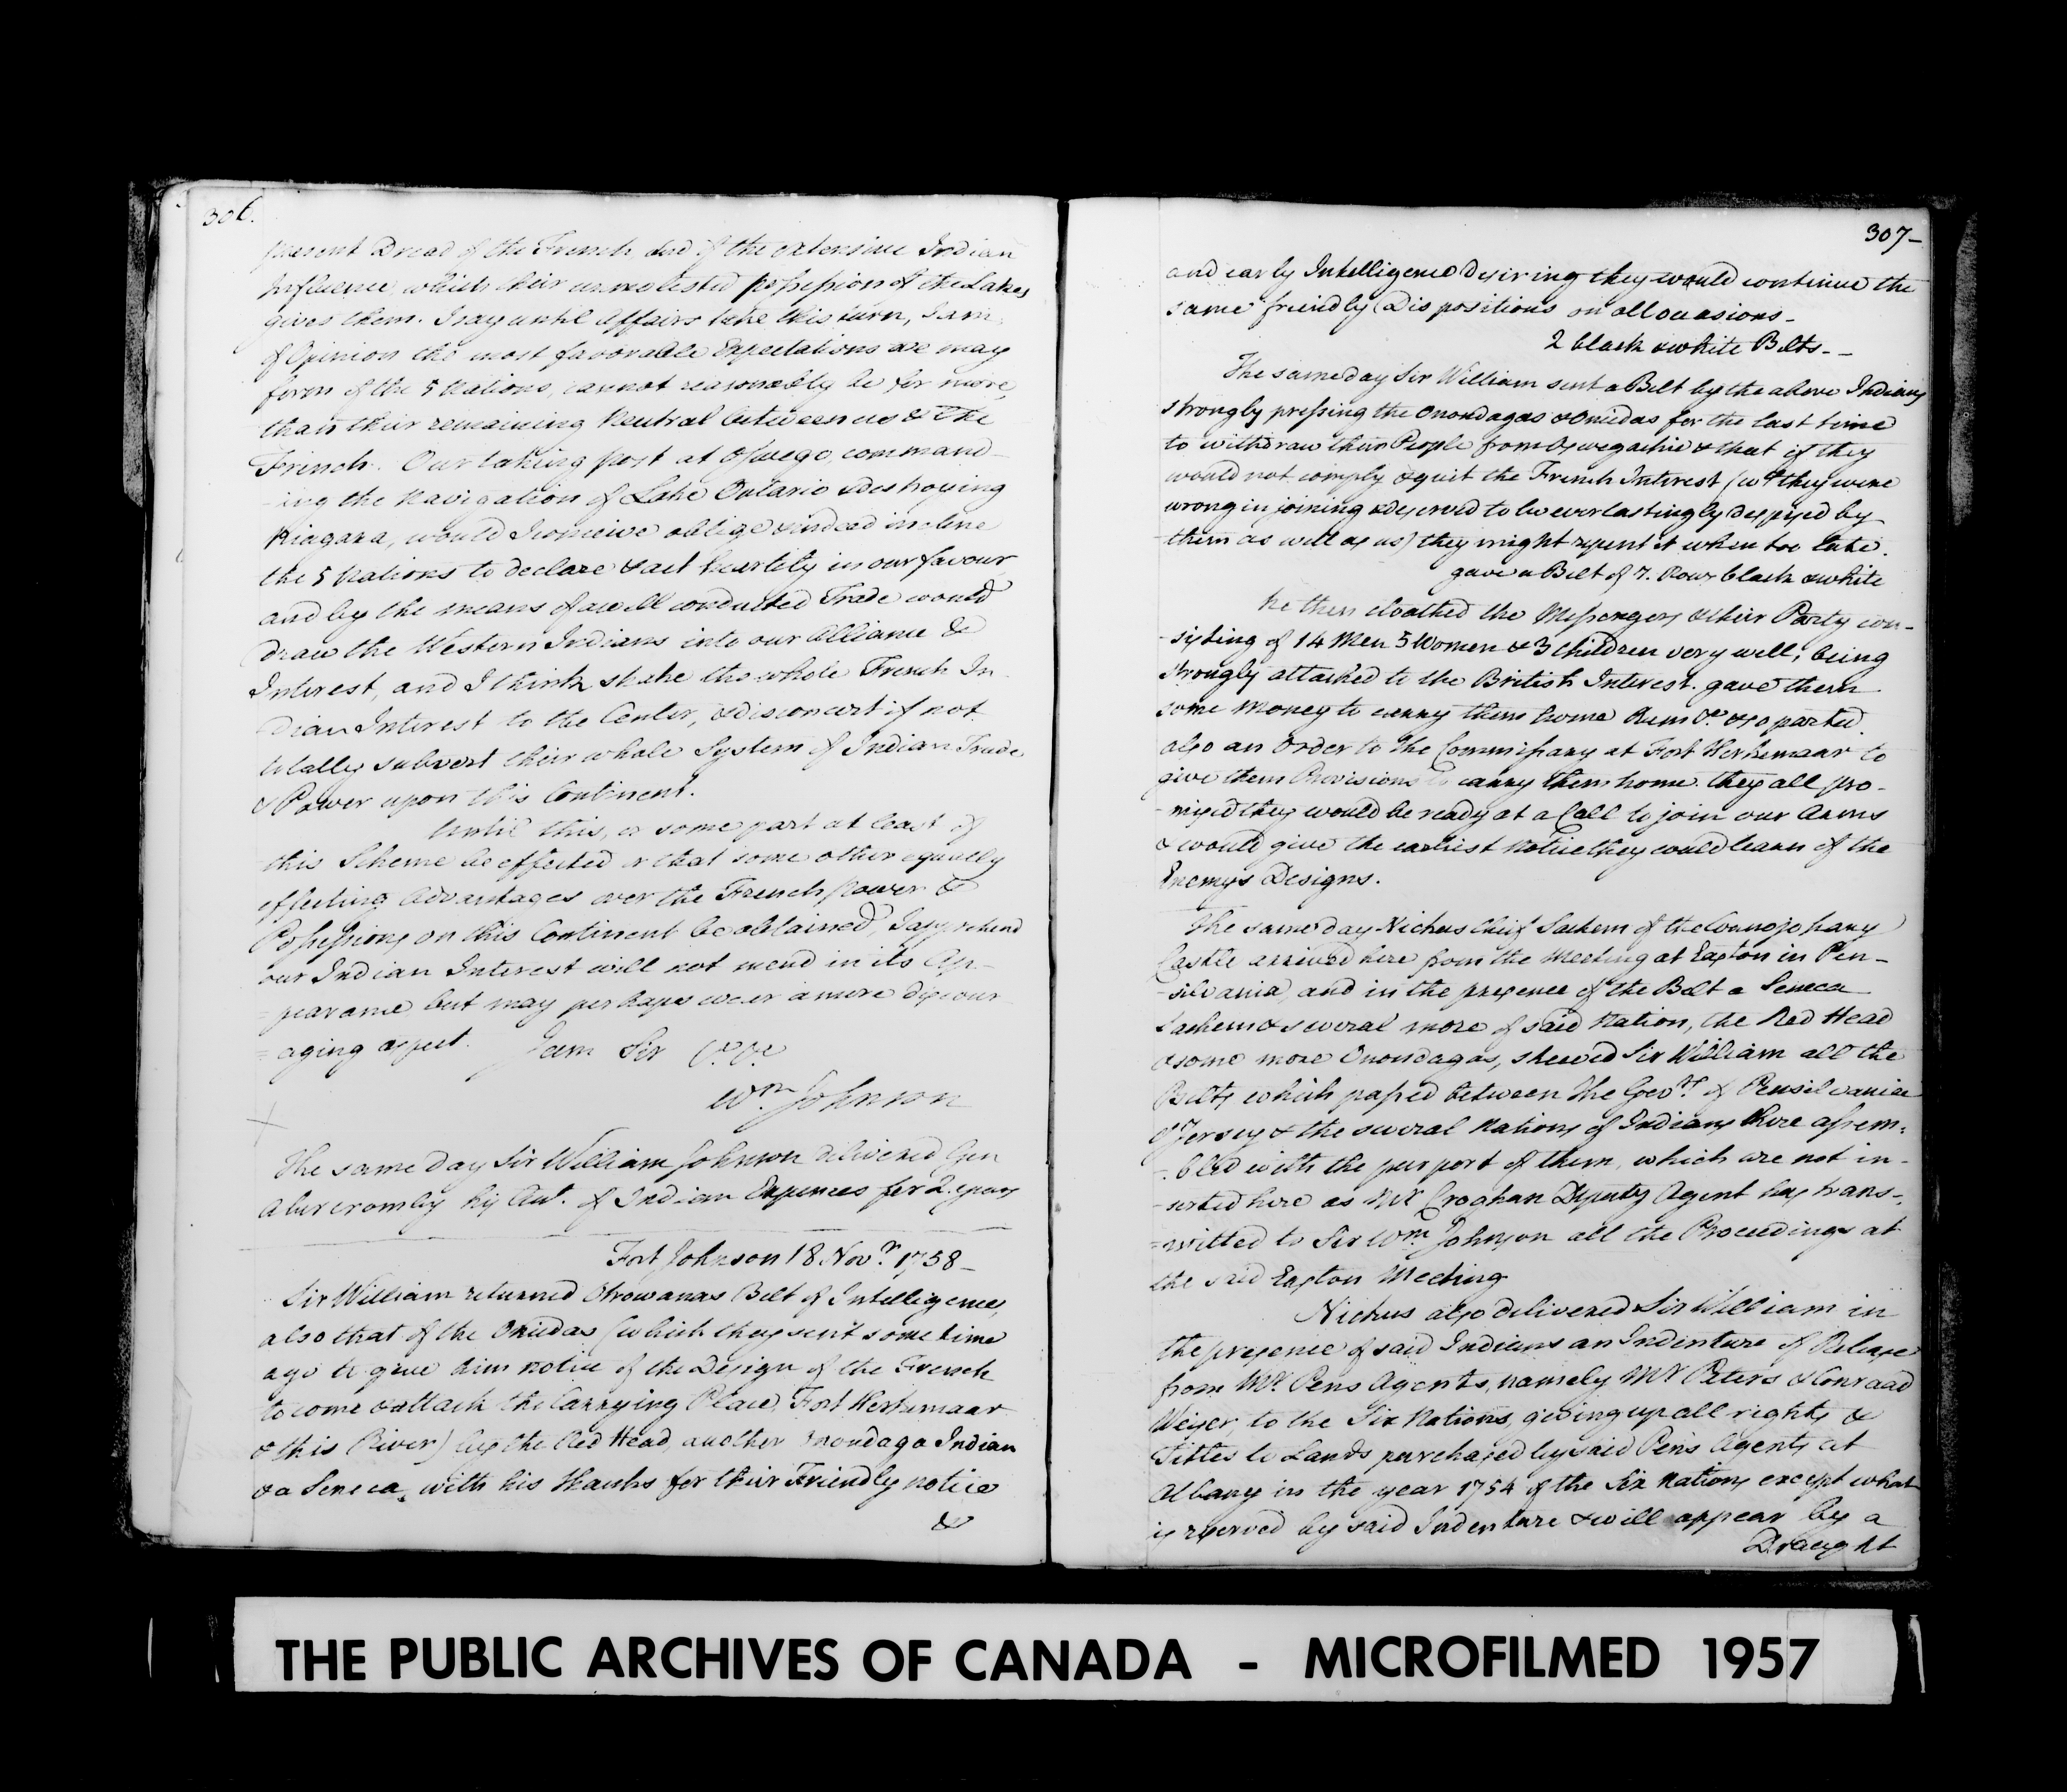 306.
present Dread of the French and of the extensive Indian
Influence which their unmolested possession of the Lakes
gives them. I say until Affairs take this turn, I am
of Opinion the most favorable Expectations we may
form of the 5 Nations, cannot reasonably be for more,
than their remaining Neutral between us & the
French. Our taking post at Oswego, command-
-ing the Navigation of Lake Ontario & destroying
Niagara, would I conceive oblige & indeed incline
the 5 Nations to declare & act heartily in our favour
and by the means of a well conducted Trade would
draw the Western Indians into our Alliance &
Interest, and I think shake the whole French In-
dian Interest to the Center, & disconcert if not
totally subvert their whole System of Indian Trade
& Power upon this Continent.
Until this, or some part at least of
this Scheme be effected or that some other equally
effecting Advantages over the French Power &
Possessions on this Continent be obtained, I apprehend
our Indian Interest will not mend in its Ap-
-pearance, but may perhaps wear a more discour
= aging aspect. I am Sir &c. &c
Wm. Johnson
The same day Sir William Johnson delivered Gen
Abercromby his Acct. of Indian Expences for 2. years
Fort Johnson 18 Novr. 1758-
Sir William returned Otrowanas Belt of Intelligence,
also that of the Oneidas (which they sent some time
ago to give him notice of the Design of the French
to come & attack the Carrying Place, Fort Herkemaar
& this River) by the Red Head, another Onondaga Indian
& a Seneca, with his thanks for their Friendly notice
&
307-
and early Intelligence desiring they would continue the
same friendly Dispositions on all occasions-
2 black & white Belts--
The same day Sir William sent a Belt by the above Indians
strongly pressing the Onondagas & Oneidas for the last time
to withdraw their People from Oswegachie & that if they
would not comply & quit the French Interest (wh. they were
wrong in joining & deserved to be everlastingly despised by
them as well as us) they might repent it when too late.
gave a Belt of 7. Rows black & white
he then cloathed the Messengers & their Party con-
-sisting of 14 Men 5 Women & 3 Children very well; being
strongly attached to the British Interest. gave them
some Money to carry them home Rum &c. & so parted.
also an Order to the Commissary at Fort Herkemaar to
give them Provisions to carry them home. they all pro-
-mised they would be ready at a Call to join our Arms
& would give the earliest Notice they could learn of the
Enemys Designs.
The same day Nickus chief Sachem of the Connojohary
Castle arrived here from the Meeting at Easton in Pen-
-silvania, and in the presence of the Belt a Seneca
Sachem & several more of said Nation, the Red Head
& some more Onondagas, shewed Sir William all the
Belts which passed between the Govrs. of Pensilvania
& Jersey & the several Nations of Indians there assem=
-bled with the purport of them, which are not in-
-serted here as Mr Croghan Deputy Agent has trans-
=mitted to Sir Wm. Johnson all the Proceedings at
the said Easton Meeting
Nickus also delivered Sir William in
the presence of said Indians an Indenture of Release
from Mr. Pens Agents, namely Mr Peters & Conraad
Weiser, to the Six Nations, giving up all rights &
Titles to Lands purchased by said Pens Agents at
Albany in the year 1754 of the Six Nations except what
is reserved by said Indenture & will appear by a
Draught
THE PUBLIC ARCHIVES OF CANADA - MICROFILMED 1957